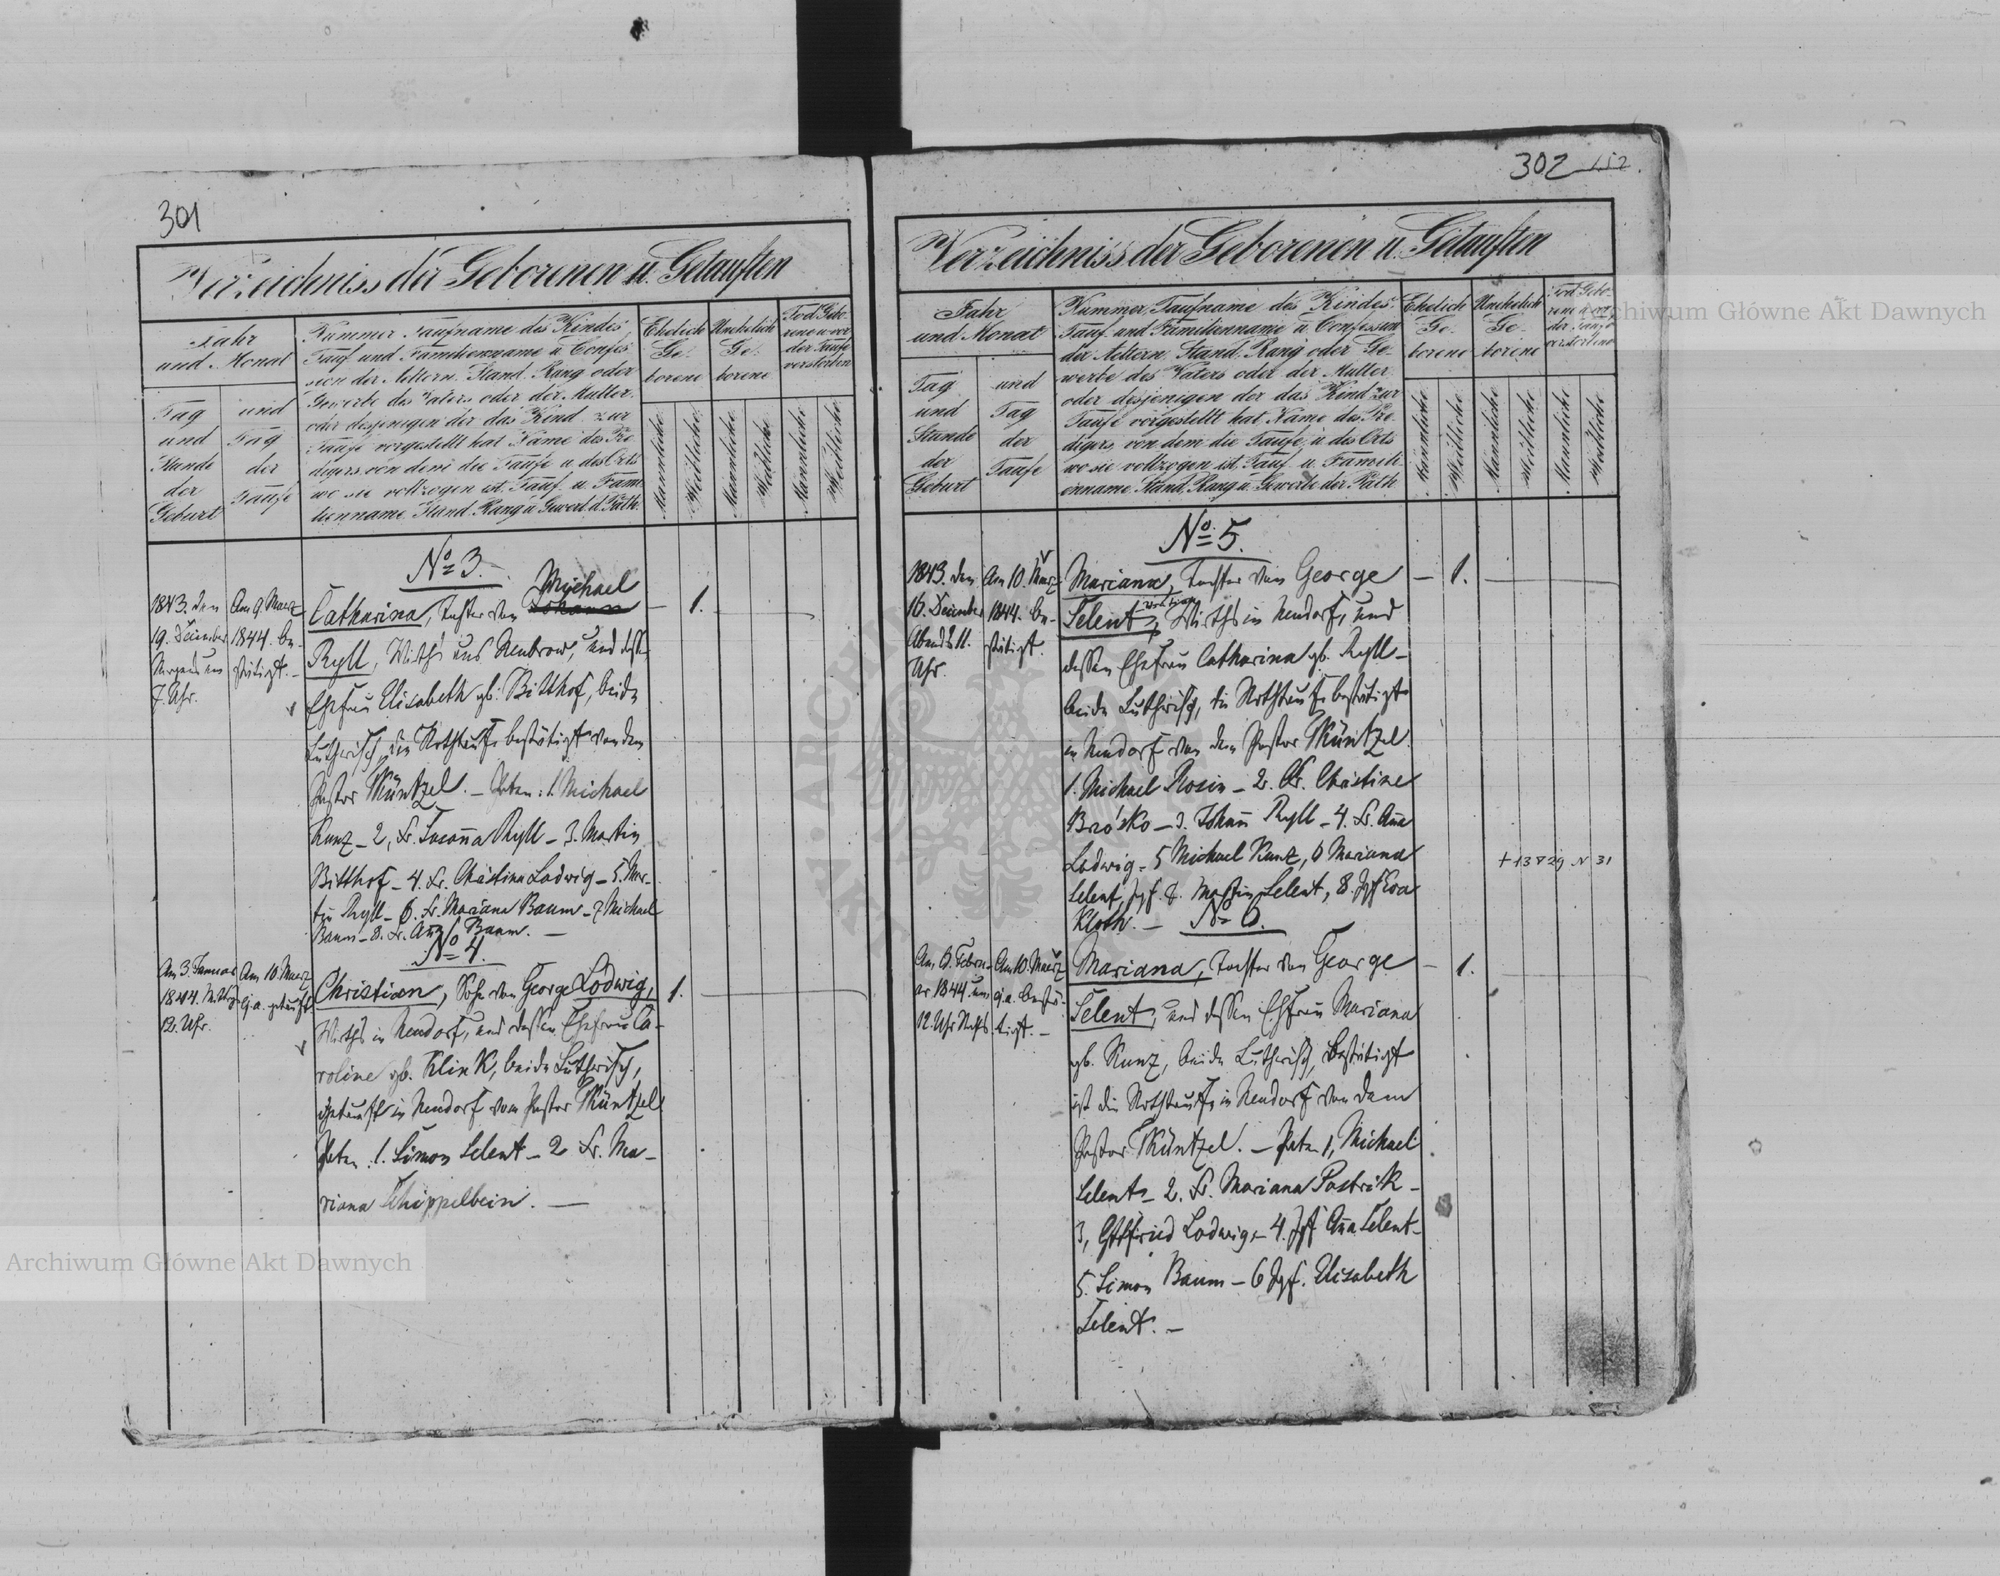 301
Verzeichniss der Geborenen u. Getauften
Jahr
und Monat
Tag
und
Stunde
der
Geburt
und
Tag
der
Taufe
Nummer, Taufname des Kindes,
Tauf und Familienname u. Confes
sion der Aeltern. Stand, Rang oder
Gewerbe des Vaters oder der Mutter
oder desjenigen der das Kind zur
Taufe vorgestellt hat Name des Pre
digers von dem die Taufe u. des Orts
wo sie vollzogen ist, Tauf u. Fami
lienname Stand, Rang u Gewerb d. Path.
Ehelich
Ge:
borene
Unehelich
Ge:
borene
Tod Gebo-
rene u. vor
der Taufe
verstorben
Männliche
Weibliche
Männliche
Weibliche
Männliche
Weibliche
No 3.
1843. den
19. December
Morgens um
7. Uhr.
Am 9. Maerz
1844. be-
stätigt. -
Michael
Catharina, Tochter von Johann
Ryll, Wirths aus Neubrow, und dess.
Ehefrau Elisabeth gb. Bitthof, beide
Lutherisch, die Nothtaufe bestätigt von dem
Pastor Müntzel. - Paten: 1. Michael
Kunz - 2, Fr. Susanna Ryll - 3. Martin
Bitthof - 4. Fr. Christina Ladwig - 5. Mar-
tin Ryll - 6. Fr. Mariana Baum - 7 Michael
Baum - 8. Fr. Anna Baum. -
— 1.
No 4.
Am 3. Januar
1844. Mittag
12. Uhr.
Am 10. Maerz
ej. a. getauft
Christian, Sohn von George Lodwig,
Wirths in Neudorf, und dessen Ehefrau Ca-
roline gb. Klink, beide Lutherisch,
getauft in Neudorf vom Pastor Müntzel
Paten: 1. Simon Selent - 2 Fr. Ma-
riana Schippelbein. —
1.
302 152.
Verzeichniss der Geborenen u. Getauften
Jahr
und Monat
Tag
und
Stunde
der
Geburt
und
Tag
der
Taufe
Nummer, Taufname des Kindes
Tauf und Familienname u. Confession
der Aeltern. Stand, Rang oder Ge-
werbe des Vaters oder der Mutter
oder desjenigen der das Kind zur
Taufe vorgestellt hat, Name des Pre
digers, von dem die Taufe u. des Orts
wo sie vollzogen ist, Tauf u. Famili
enname Stand, Rang u. Gewerbe der Path
Ehelich
Ge:
borene
Unehelich
Ge:
borene
Tod Gebo-
rene u. vor
der Taufe
verstorbene
Männliche
Weibliche
Männliche
Weibliche
Männliche
Weibliche
No 5.
1843. den
16. December
Abends 11.
Uhr.
Am 10. Maerz
1844. be-
stätigt.
Mariana, Tochter von George
Selent, Wirths in Neudorf, und
dessen Ehefrau Catharina gb. Ryll -
beide Lutherisch, die Nothtaufe bestätigt
in Neudorf von dem Pastor Müntzel
1. Michael Rosin - 2. Fr. Christine
Brosko - 3. Johann Ryll - 4. Fr. Anna
Ladwig - 5 Michael Kunz, 6 Mariana
Selent, Jgf. 7. Martin Selent, 8. Jgf Eva
Kloth. -
— 1.
+ 13 7 29 N 31
No 6.
Am 6. Febru-
ar 1844. um
12. Uhr Nachts
Am 10. Maerz
ej. a. bestä-
tigt. -
Mariana, Tochter von George
Selent, und dessen Ehefrau Mariana
gb. Kunz, beide Lutherisch, bestätigt
ist die Nothtaufe in Neudorf von dem
Pastor Müntzel. - Paten 1, Michael
Selent - 2. Fr. Mariana Pastrik -
3, Gottfried Ladwig - 4. Jgf Anna Selent -
5. Simon Baum - 6 Jgf. Elisabeth
Selent. -
— 1.
Archiwum Główne Akt Dawnych
Archiwum Główne Akt Dawnych